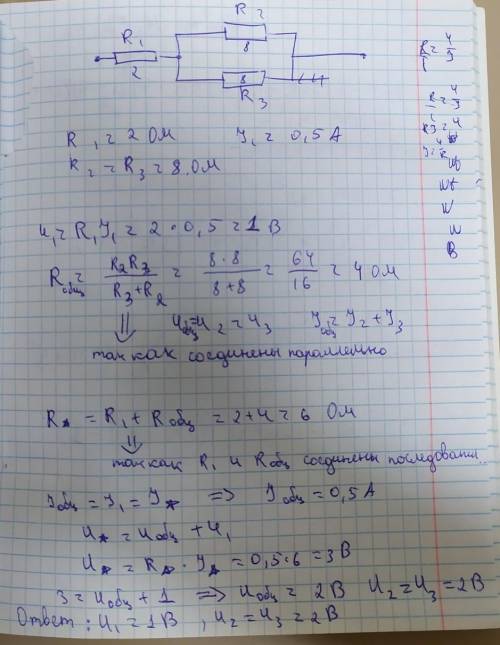 R₁
R₂
2
8
8
R₃
R₁ = 2 Ом    I₁ = 0,5 А
R₂ = R₃ = 8 Ом
U₁ = R₁I₁ = 2 · 0,5 = 1 В
Rобщ = R₂R₃ / R₃+R₂ = 8·8 / 8+8 = 64 / 16 = 4 Ом
Uобщ = U₂ = U₃    Iобщ = I₂ + I₃
так как соединены параллельно
R* = R₁ + Rобщ = 2+4 = 6 Ом
так как R₁ и Rобщ соединены
Iобщ = I₁ = I* => Iобщ = 0,5 А
U* = Uобщ + U₁
U* = R* · I* = 0,5·6 = 3 В
3 = Uобщ + 1 => Uобщ = 2 В    U₂ = U₃ = 2 В
Ответ: U₁ = 1 В, U₂ = U₃ = 2 В